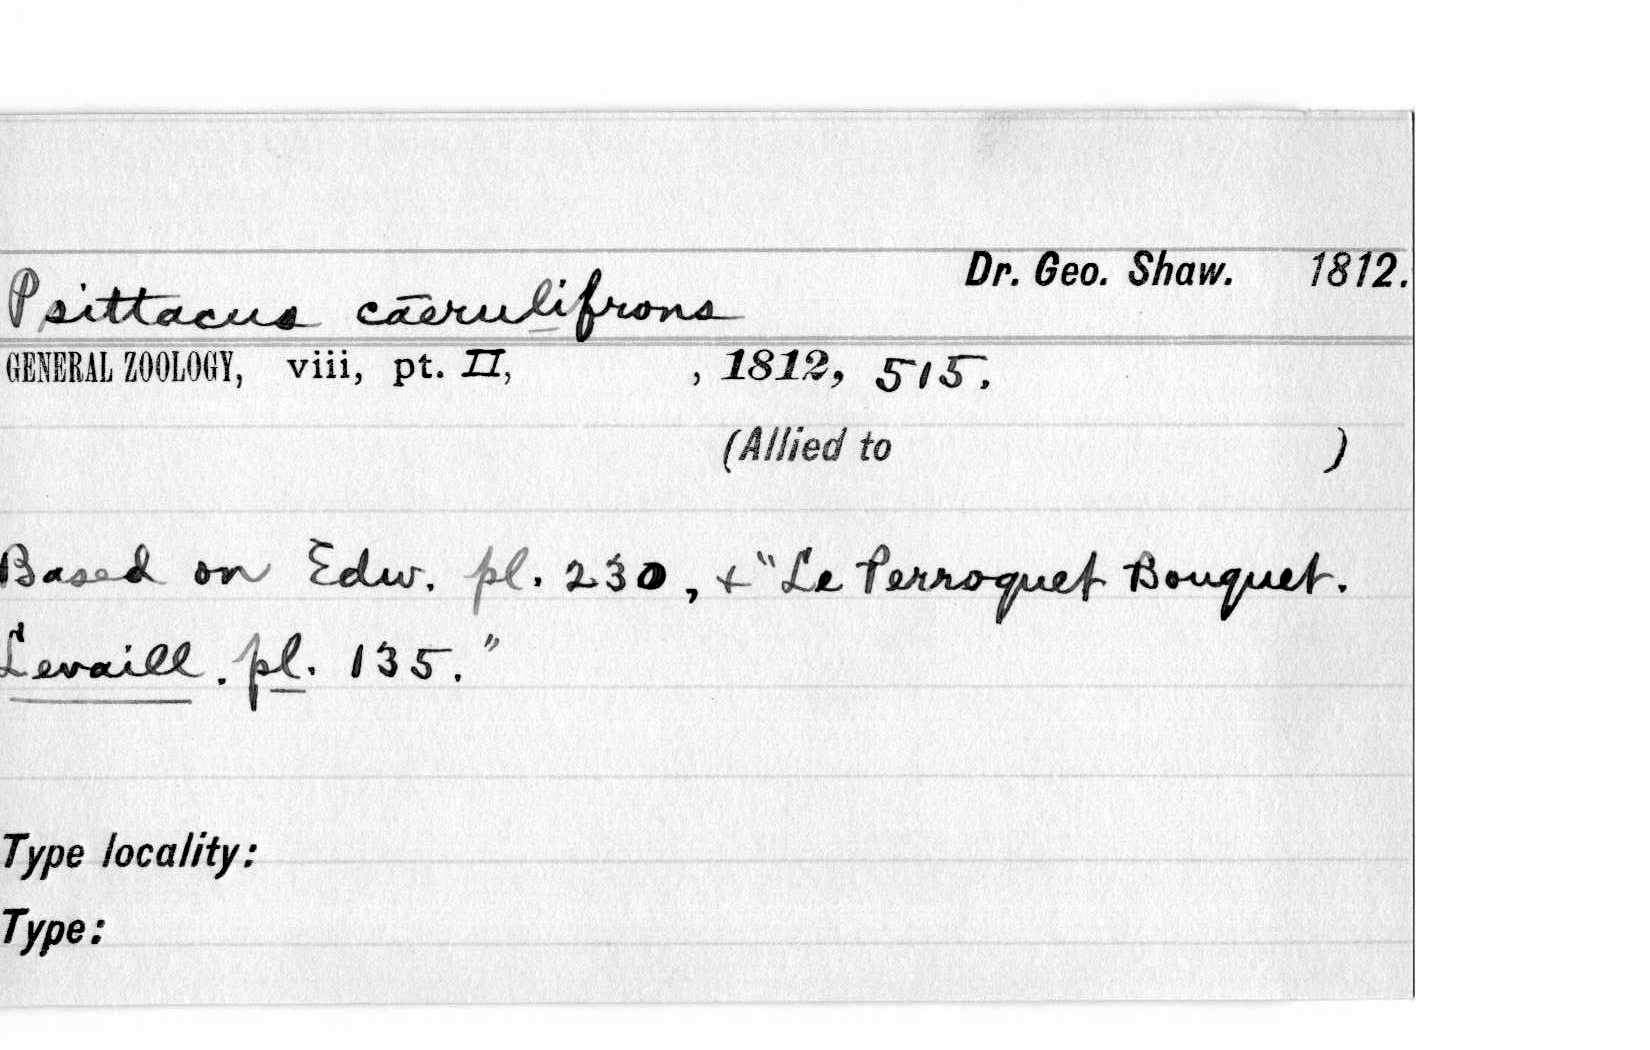 Dr. Geo. Shaw. 1812.
Psittacus caerulifrons
GENERAL ZOOLOGY, viii, pt. II, , 1812, 515.
(Allied to )
Based on Edw. pl. 230, + "Le Perroquet Bouquet.
Levaill. pl. 135."
Type locality:
Type: